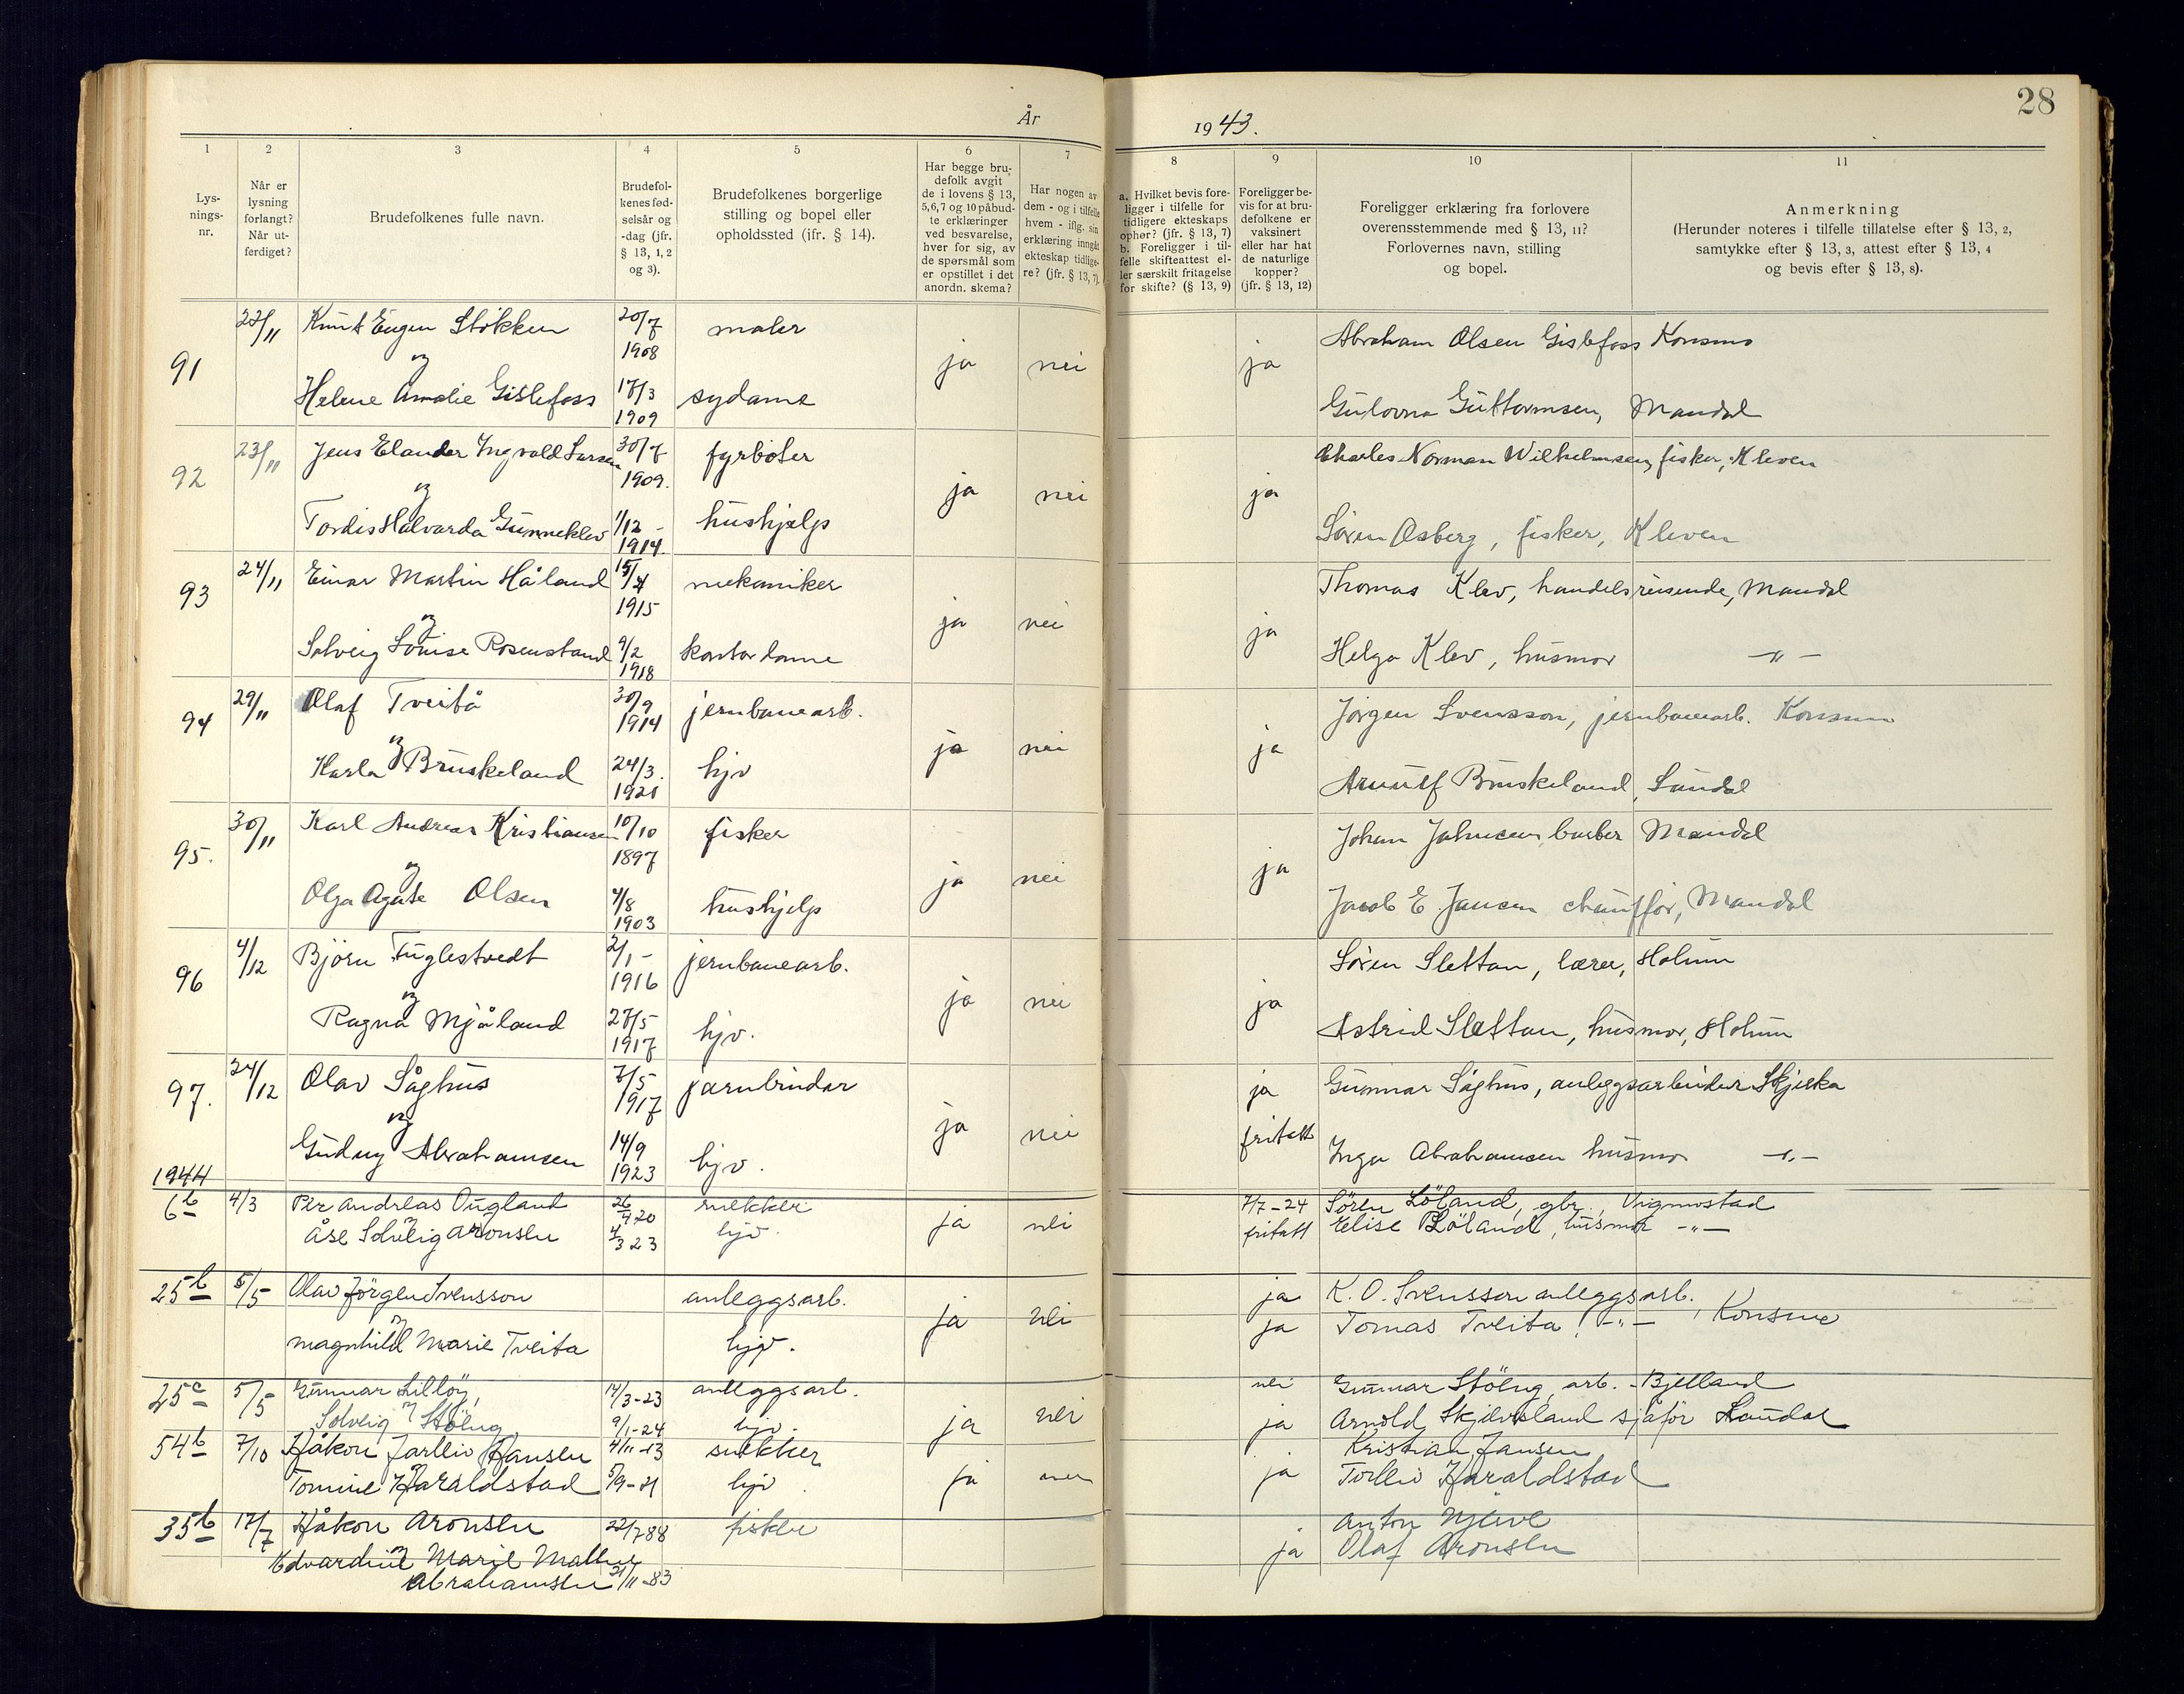 28
År 1943.
1 2 3 4 5 6 7 8 9 10 11
Lysnings-nr.
Når er lysning forlangt? Når utferdiget?
Brudefolkenes fulle navn.
Brudefolkenes fødselsår og -dag (jfr. § 13, 1, 2 og 3).
Brudefolkenes borgerlige stilling og bopel eller opholdssted (jfr. § 14).
Har begge brudefolk avgit de i lovens § 13, 5, 6, 7 og 10 påbudte erklæringer ved besvarelse, hver for sig, av de spørsmål som er opstillet i det anordn. skema?
Har nogen av dem - og i tilfelle hvem - iflg. sin erklæring inngått ekteskap tidligere? (jfr. § 13, 7).
a. Hvilket bevis foreligger i tilfelle for tidligere ekteskaps ophør? (jfr. § 13, 7)
b. Foreligger i tilfelle skifteattest eller særskilt fritagelse for skifte? (§ 13, 9)
Foreligger bevis for at brudefolkene er vaksinert eller har hat de naturlige kopper? (jfr. § 13, 12)
Foreligger erklæring fra forlovere overensstemmende med § 13, 11? Forlovernes navn, stilling og bopel.
Anmerkning
(Herunder noteres i tilfelle tillatelse efter § 13, 2, samtykke efter § 13, 3, attest efter § 13, 4 og bevis efter § 13, 8).
91 22/11 Knut Eugen Stökken 20/7 1908 maler ja nei ja Abraham Olsen Gislefoss Konsmo
og
Helene Amalie Gislefoss 17/3 1909 sydame Gulovna Guttormsen, Mandal
92 23/11 Jens Elander Ingvald Larsen 30/7 1909. fyrböter ja nei ja Charles Norman Wilhelmsen, fisker, Kleven
og
Tordis Halvarda Gunneklev 1/12 - 1914. hushjelp Sören Osberg, fisker, Kleven
93 24/11 Einar Martin Håland 15/4 1915 mekaniker ja nei ja Thomas Klev, handelsreisende, Mandal
og
Solveig Louise Rosenstand 9/2 1918 kontordame Helga Klev, husmor -"-
94 29/11 Olaf Tveitå 30/9 1914 jernbanearb. ja nei ja Jörgen Svensson, jernbanearb. Konsmo
og
Karla Bruskeland 24/3. 1921 hjv Arnulf Bruskeland, Laudal
95. 30/11 Karl Andreas Kristiansen 10/10 1897 fisker ja nei ja Johan Johnsen, barber Mandal
og
Olga Agate Olsen 4/8 1903 hushjelp Jacob E. Jansen chaufför, Mandal
96 4/12 Björn Fuglestvedt 2/1 - 1916 jernbanearb. ja nei ja Sören Slettan, lærer, Holum
og
Ragna Mjåland 27/5 1917 hjv. Astrid Slettan, husmor, Holum
97. 24/12 Olav Såghus 7/5 1917 jarnbindar ja nei ja Gunnar Såghus, anleggsarbeider Skjeka
og
Gudny Abrahamsen 14/9 1923 hjv. fritatt Inga Abrahamsen husmor -"-
1944
6b 4/3 Per Andreas Ougland 26/4 20 snekker ja nei 7/7-24 Sören Löland, gbr., Vigmostad
og
Åse Solveig Aronsen 4/3 23 hjv. fritatt Elise Löland, husmor -"-
25b 5/5 Olav Jörgen Svensson anleggsarb. ja nei ja K. O. Svensson anleggsarb.
og
Magnhild Marie Tveita hjv. ja Tomas Tveita, -"- , Konsmo
25c 5/5 Gunnar Lillöy, 14/3-23 anleggsarb. ja nei nei Gunnar Stölng, arb. Bjelland
og
Solveig Stölng 9/1-24 hjv. ja Arnold Skjevesland sjåför Laudal
54b 7/10 Håkon Jarlliv Hansen 4/11-13 snekker ja Kristian Jansen
Tomine Haraldstad 5/9-21 hjv ja Torleiv Haraldstad
35b 17/7 Håkon Aronsen 22/7 88 fisker Anton Njerve
og
Edvardine Marie Mathea Abrahamsen 21/11-83 ja Olaf Aronsen